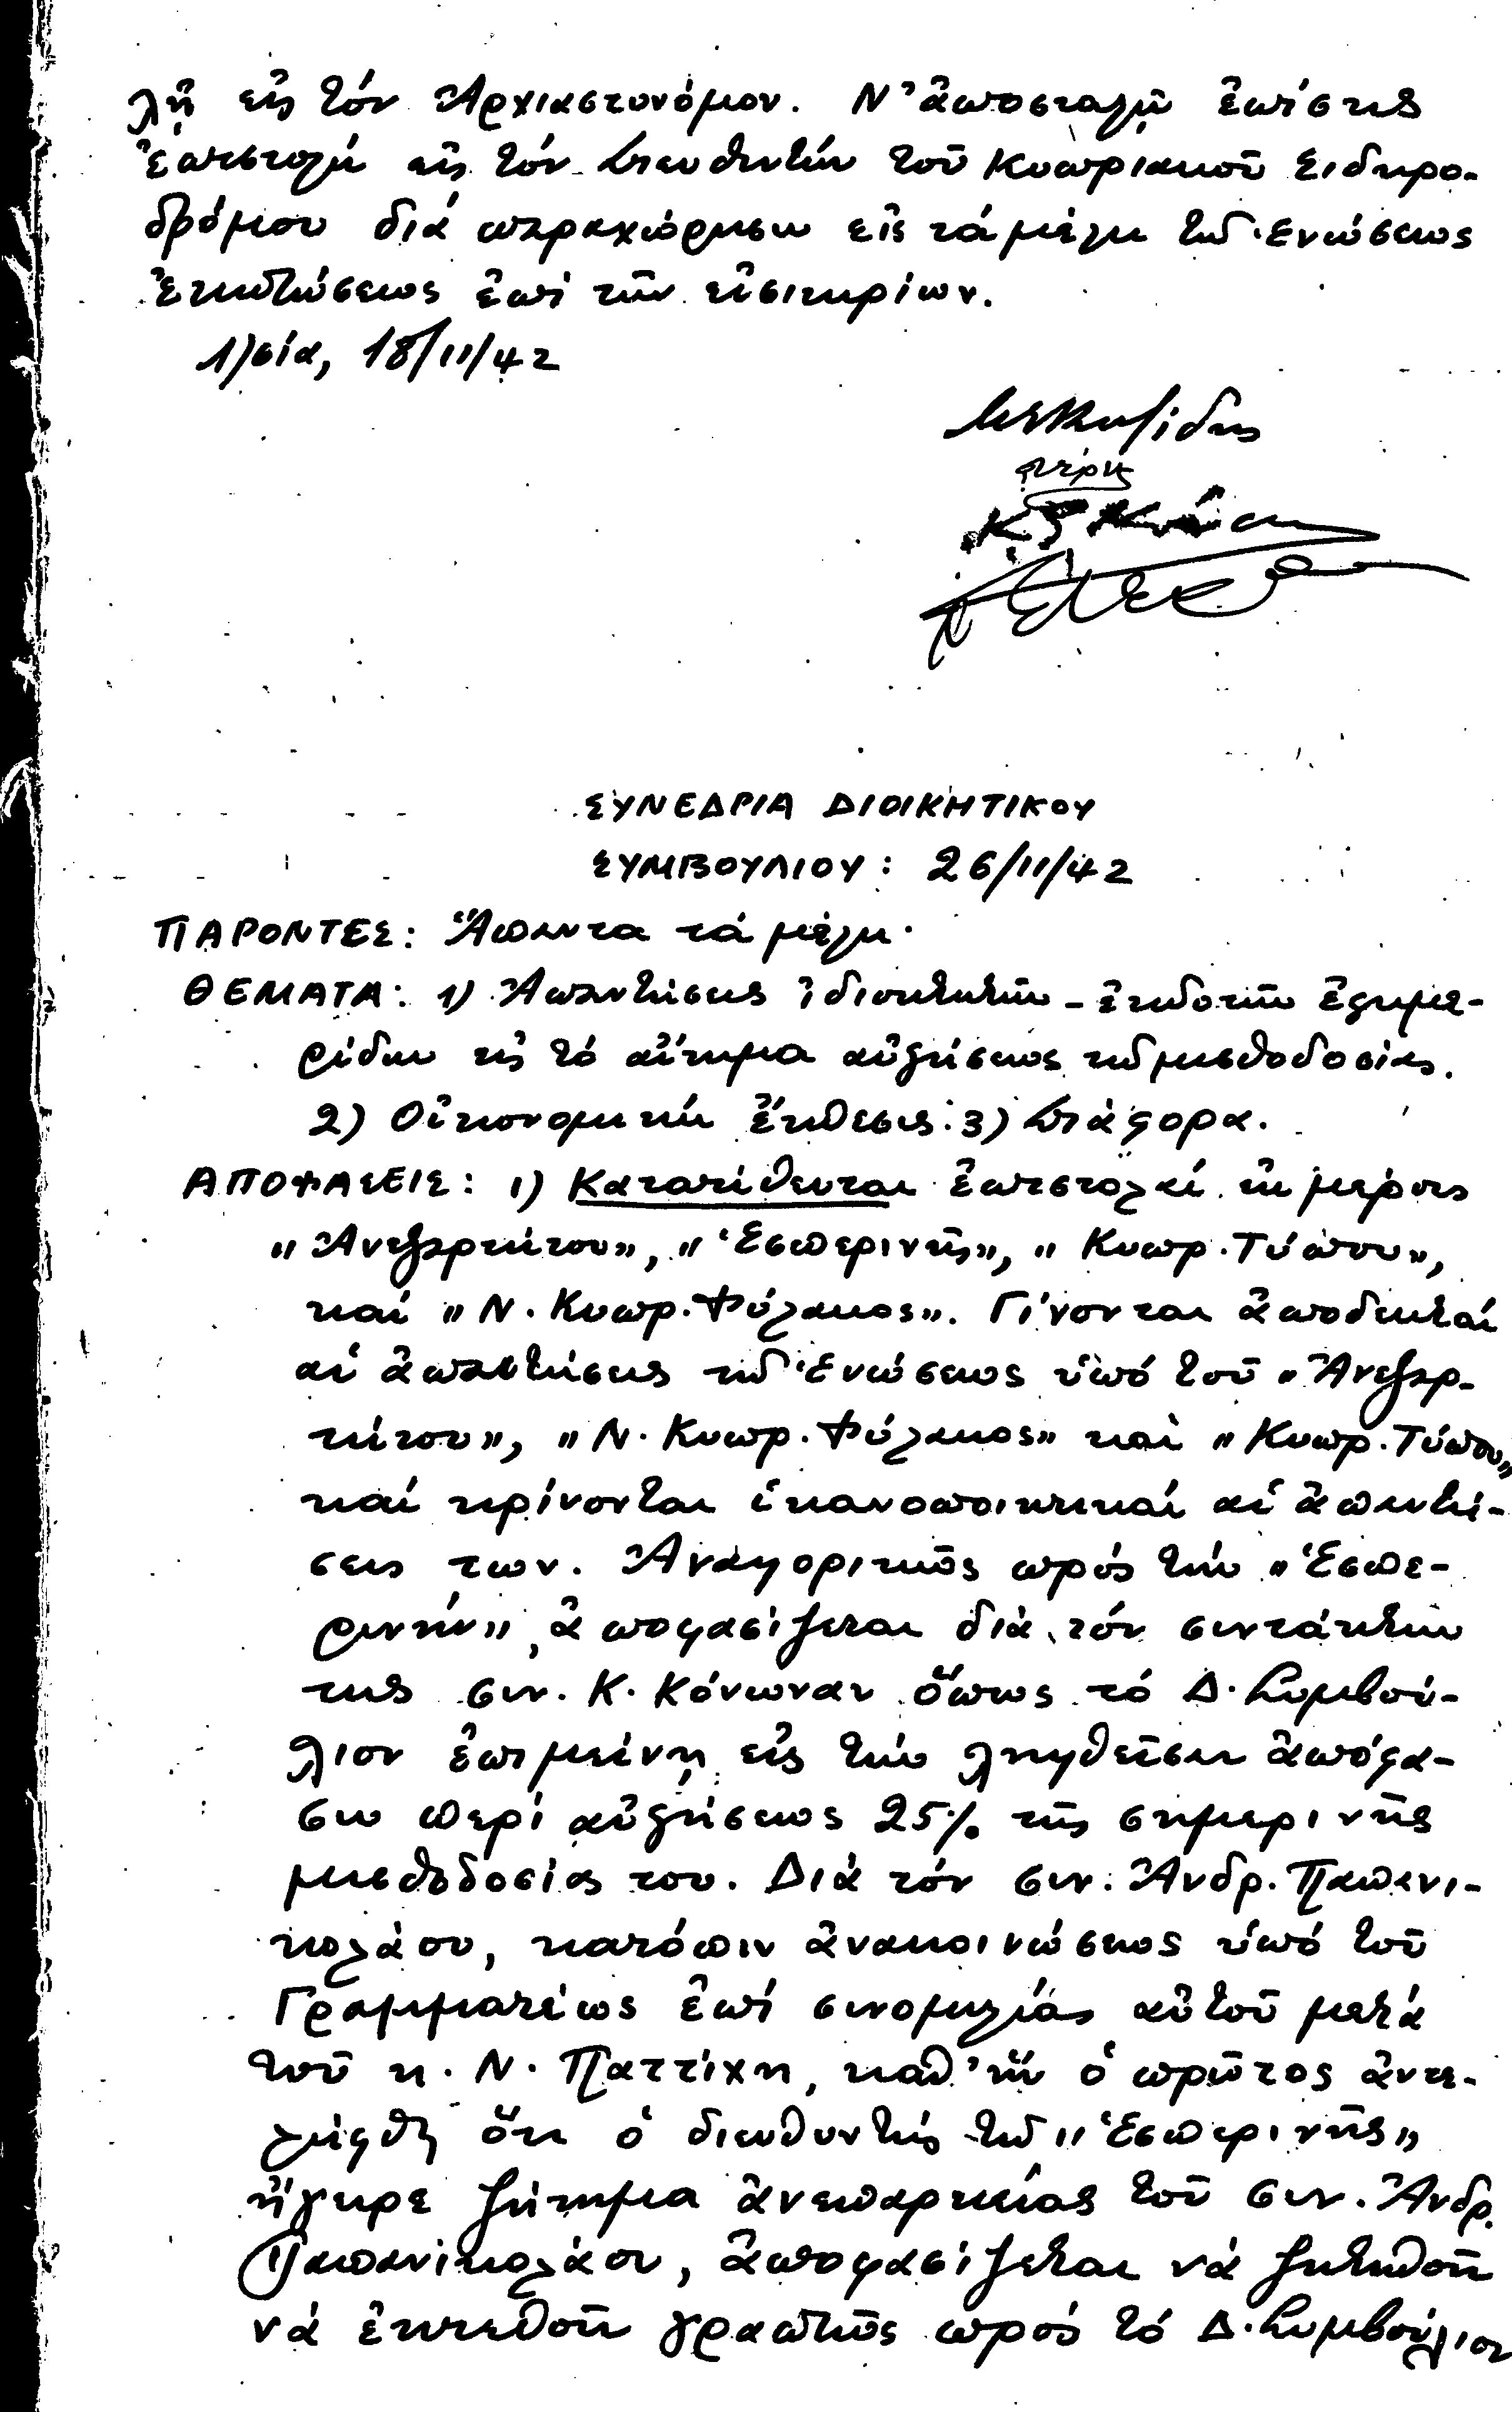 λῇ εἰς τόν Ἀρχιαστυνόμον. Ν' ἀποσταλῇ ἐπίσης
ἐπιστολή εἰς τόν Διευθυντήν τοῦ Κυπριακοῦ Σιδηρο-
δρόμου διά παραχώρησιν εἰς τά μέλη τῆς Ἑνώσεως
ἐκπτώσεως ἐπί τῶν εἰσιτηρίων.
Λ)σία, 18/11/42
ΣΥΝΕΔΡΙΑ ΔΙΟΙΚΗΤΙΚΟΥ
ΣΥΜΒΟΥΛΙΟΥ: 26/11/42
ΠΑΡΟΝΤΕΣ: Ἅπαντα τά μέλη.
ΘΕΜΑΤΑ: 1) Ἀπαντήσεις ἰδιοκτητῶν - ἐκδοτῶν ἐφημε-
ρίδων εἰς τό αἴτημα αὐξήσεως τῆς μισθοδοσίας.
2) Οἰκονομική ἔκθεσις. 3) Διάφορα.
ΑΠΟΦΑΣΕΙΣ: 1) Κατατίθενται ἐπιστολαί ἐκ μέρους
"Ἀνεξαρτήτου", "Ἑσπερινῆς", "Κυπρ. Τύπου",
καί "Ν. Κυπρ. Φύλακος". Γίνονται ἀποδεκταί
αἱ ἀπαντήσεις τῆς Ἑνώσεως ὑπό τοῦ "Ἀνεξαρ-
τήτου", "Ν. Κυπρ. Φύλακος" καί "Κυπρ. Τύπου"
καί κρίνονται ἱκανοποιητικαί αἱ ἀπαντή-
σεις των. Ἀναφορικῶς πρός τήν "Ἑσπε-
ρινήν", ἀποφασίζεται διά τόν συντάκτην
της συν. Κ. Κόνωναν ὅπως τό Δ. Συμβού-
λιον ἐπιμείνῃ εἰς τήν ληφθεῖσαν ἀπόφα-
σιν περί αὐξήσεως 25% τῆς σημερινῆς
μισθοδοσίας του. Διά τόν συν. Ἀνδρ. Παπανι-
κολάου, κατόπιν ἀνακοινώσεως ὑπό τοῦ
Γραμματέως ἐπί συνομιλίας αὐτοῦ μετά
τοῦ κ. Ν. Παττίχη, καθ' ἥν ὁ πρῶτος ἀντε-
λήφθη ὅτι ὁ διευθυντής τῆς "Ἑσπερινῆς"
ἤγειρε ζήτημα ἀνεπαρκείας τοῦ συν. Ἀνδρ.
Παπανικολάου, ἀποφασίζεται νά ζητηθοῦν
νά ἐκτεθοῦν γραπτῶς πρός τό Δ. Συμβούλιον